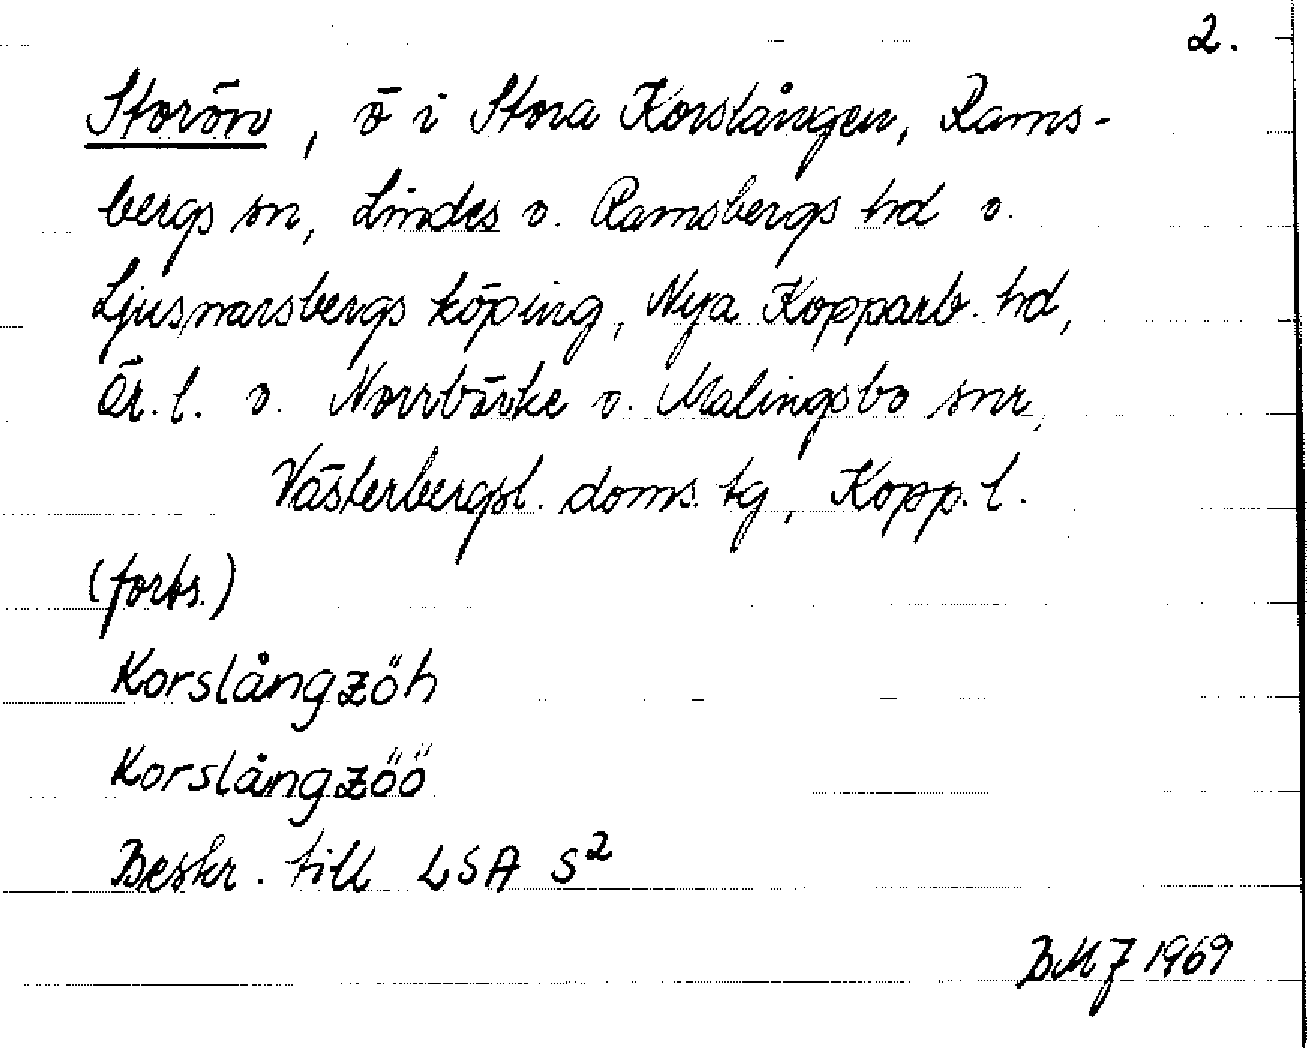 2.
Storön, ö i Stora Korslången, Rams-
bergs sn, Lindes o. Ramsbergs hd o.
Ljusnarsbergs köping, Nya Kopparb. hd,
Ör. l. o. Norrbärke o. Malingsbo snr,
Västerbergsl. doms. tg, Kopp. l.
(forts.)
Korslångzöh
Korslångzöö
Beskr. till LSA S²
BMJ 1969